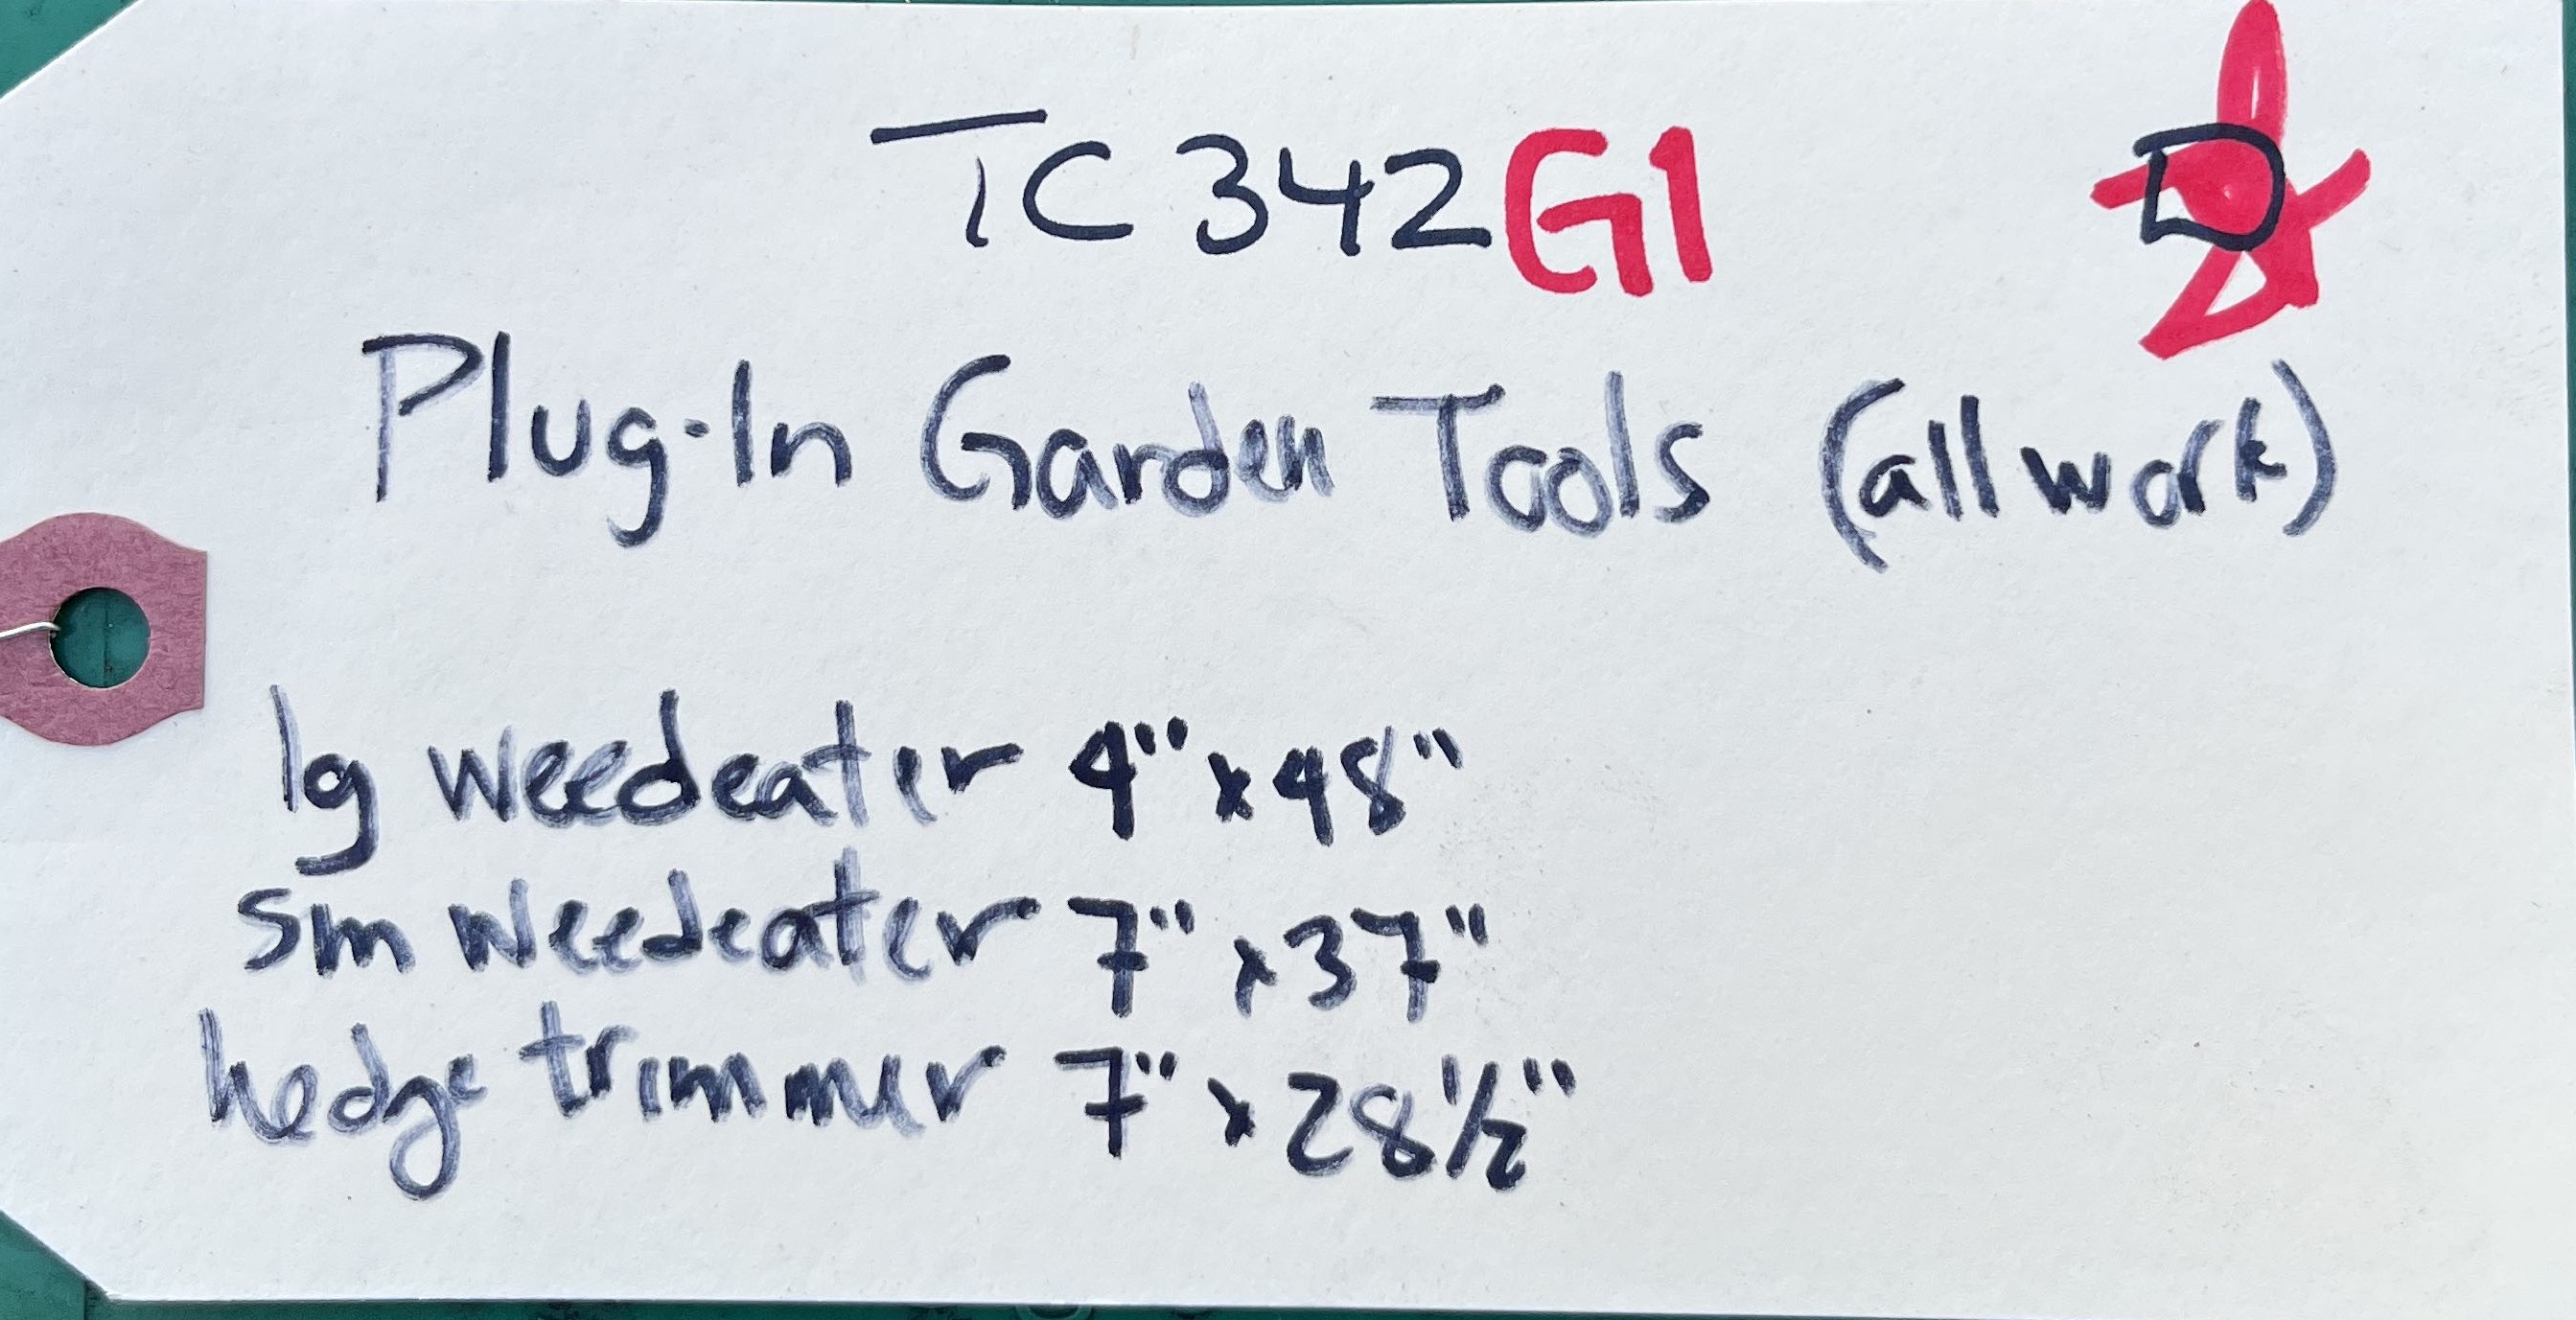 TC342G1 D
Plug-In Garden Tools (all work)
lg weedeater 4" x 48"
sm weedeater 7" x 37"
hedge trimmer 7" x 28 1/2"